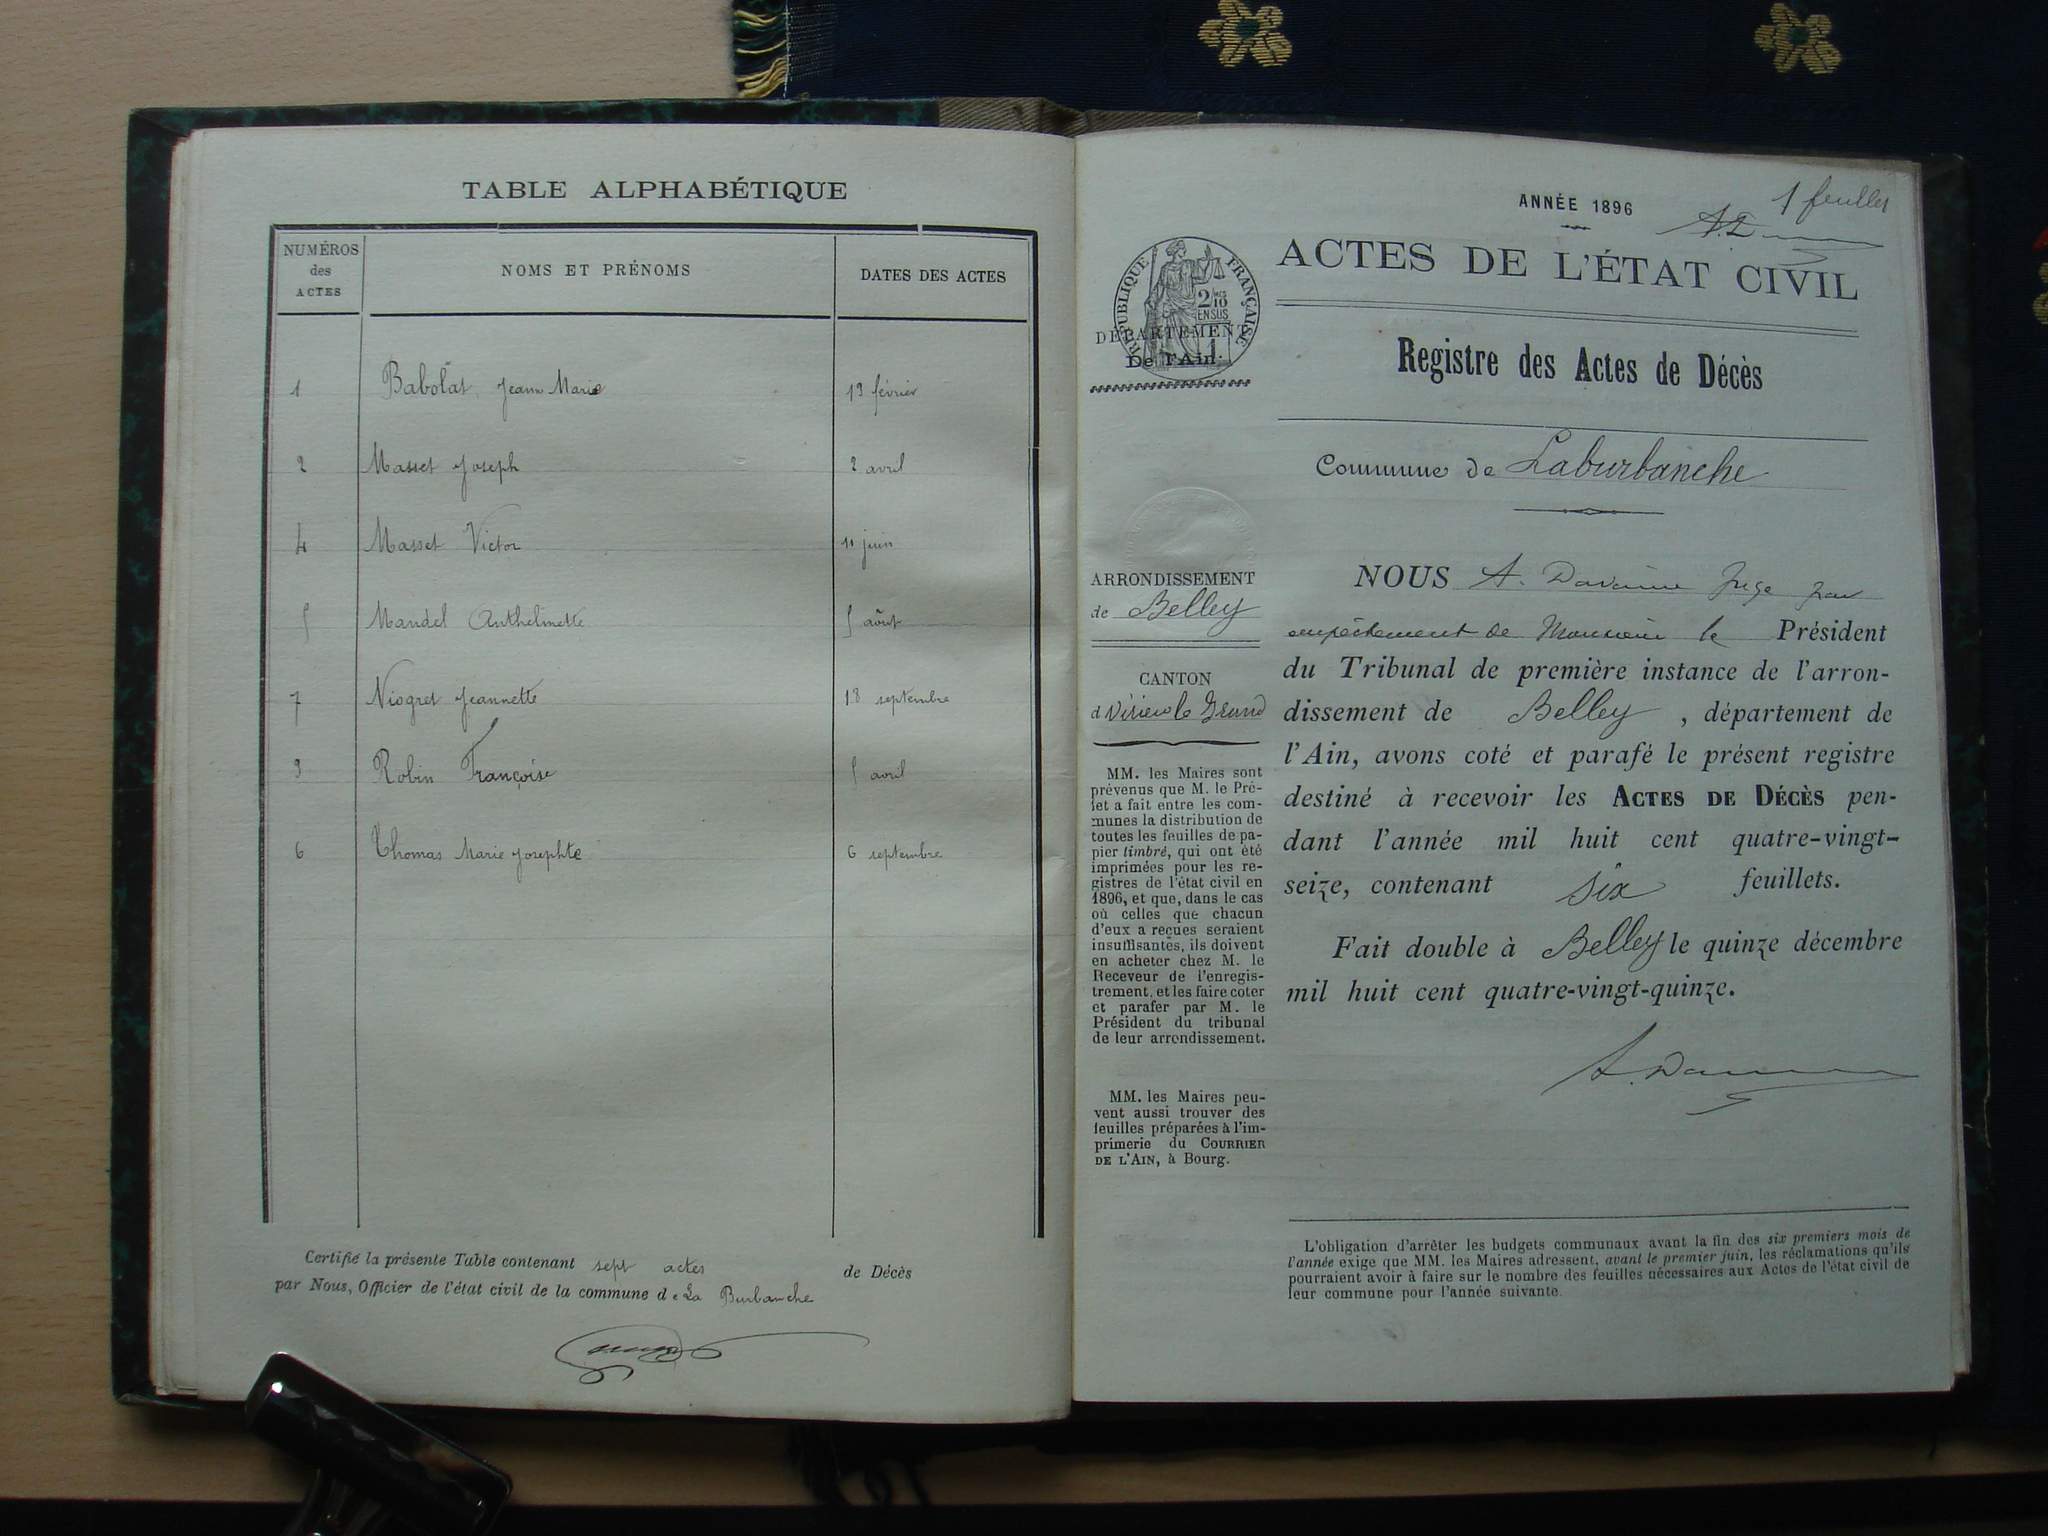 TABLE ALPHABÉTIQUE
NUMÉROS des ACTES NOMS ET PRÉNOMS DATES DES ACTES
1 Babolat Jean Marie 13 février
2 Masset Joseph 2 avril
4 Masset Victor 11 juin
5 Mandel Anthelmette 5 août
7 Niogret Jeannette 18 septembre
3 Robin Françoise 5 avril
6 Thomas Marie Josephte 6 septembre
Certifié la présente Table contenant sept actes de Décès
par Nous, Officier de l'état civil de la commune de La Burbanche
1 feuillet
ANNÉE 1896
ACTES DE L'ÉTAT CIVIL
RÉPUBLIQUE FRANÇAISE
DÉPARTEMENT
De l'Ain.
Registre des Actes de Décès
Commune de Laburbanche
ARRONDISSEMENT
de Belley
CANTON
d Virieu le Grand
MM. les Maires sont
prévenus que M. le Pré-
fet a fait entre les com-
munes la distribution de
toutes les feuilles de pa-
pier timbré, qui ont été
imprimées pour les re-
gistres de l'état civil en
1896, et que, dans le cas
où celles que chacun
d'eux a reçues seraient
insuffisantes, ils doivent
en acheter chez M. le
Receveur de l'enregis-
trement, et les faire coter
et parafer par M. le
Président du tribunal
de leur arrondissement.
MM. les Maires peu-
vent aussi trouver des
feuilles préparées à l'im-
primerie du COURRIER
DE L'AIN, à Bourg.
NOUS A. Juge par
empêchement de Monsieur le Président
du Tribunal de première instance de l'arron-
dissement de Belley, département de
l'Ain, avons coté et parafé le présent registre
destiné à recevoir les ACTES DE DÉCÈS pen-
dant l'année mil huit cent quatre-vingt-
seize, contenant six feuillets.
Fait double à Belley le quinze décembre
mil huit cent quatre-vingt-quinze.
L'obligation d'arrêter les budgets communaux avant la fin des six premiers mois de
l'année exige que MM. les Maires adressent, avant le premier juin, les réclamations qu'ils
pourraient avoir à faire sur le nombre des feuilles nécessaires aux Actes de l'état civil de
leur commune pour l'année suivante.